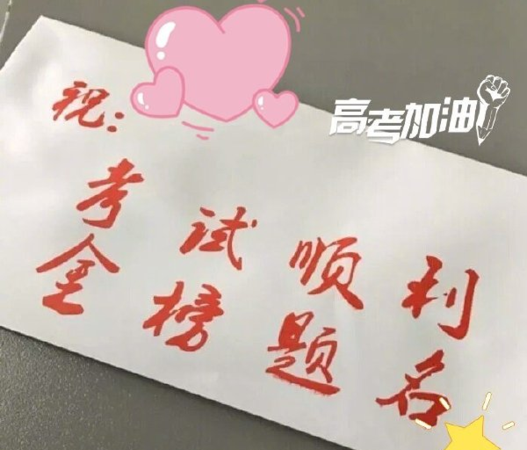 祝：
高考加油
考试顺利
金榜题名